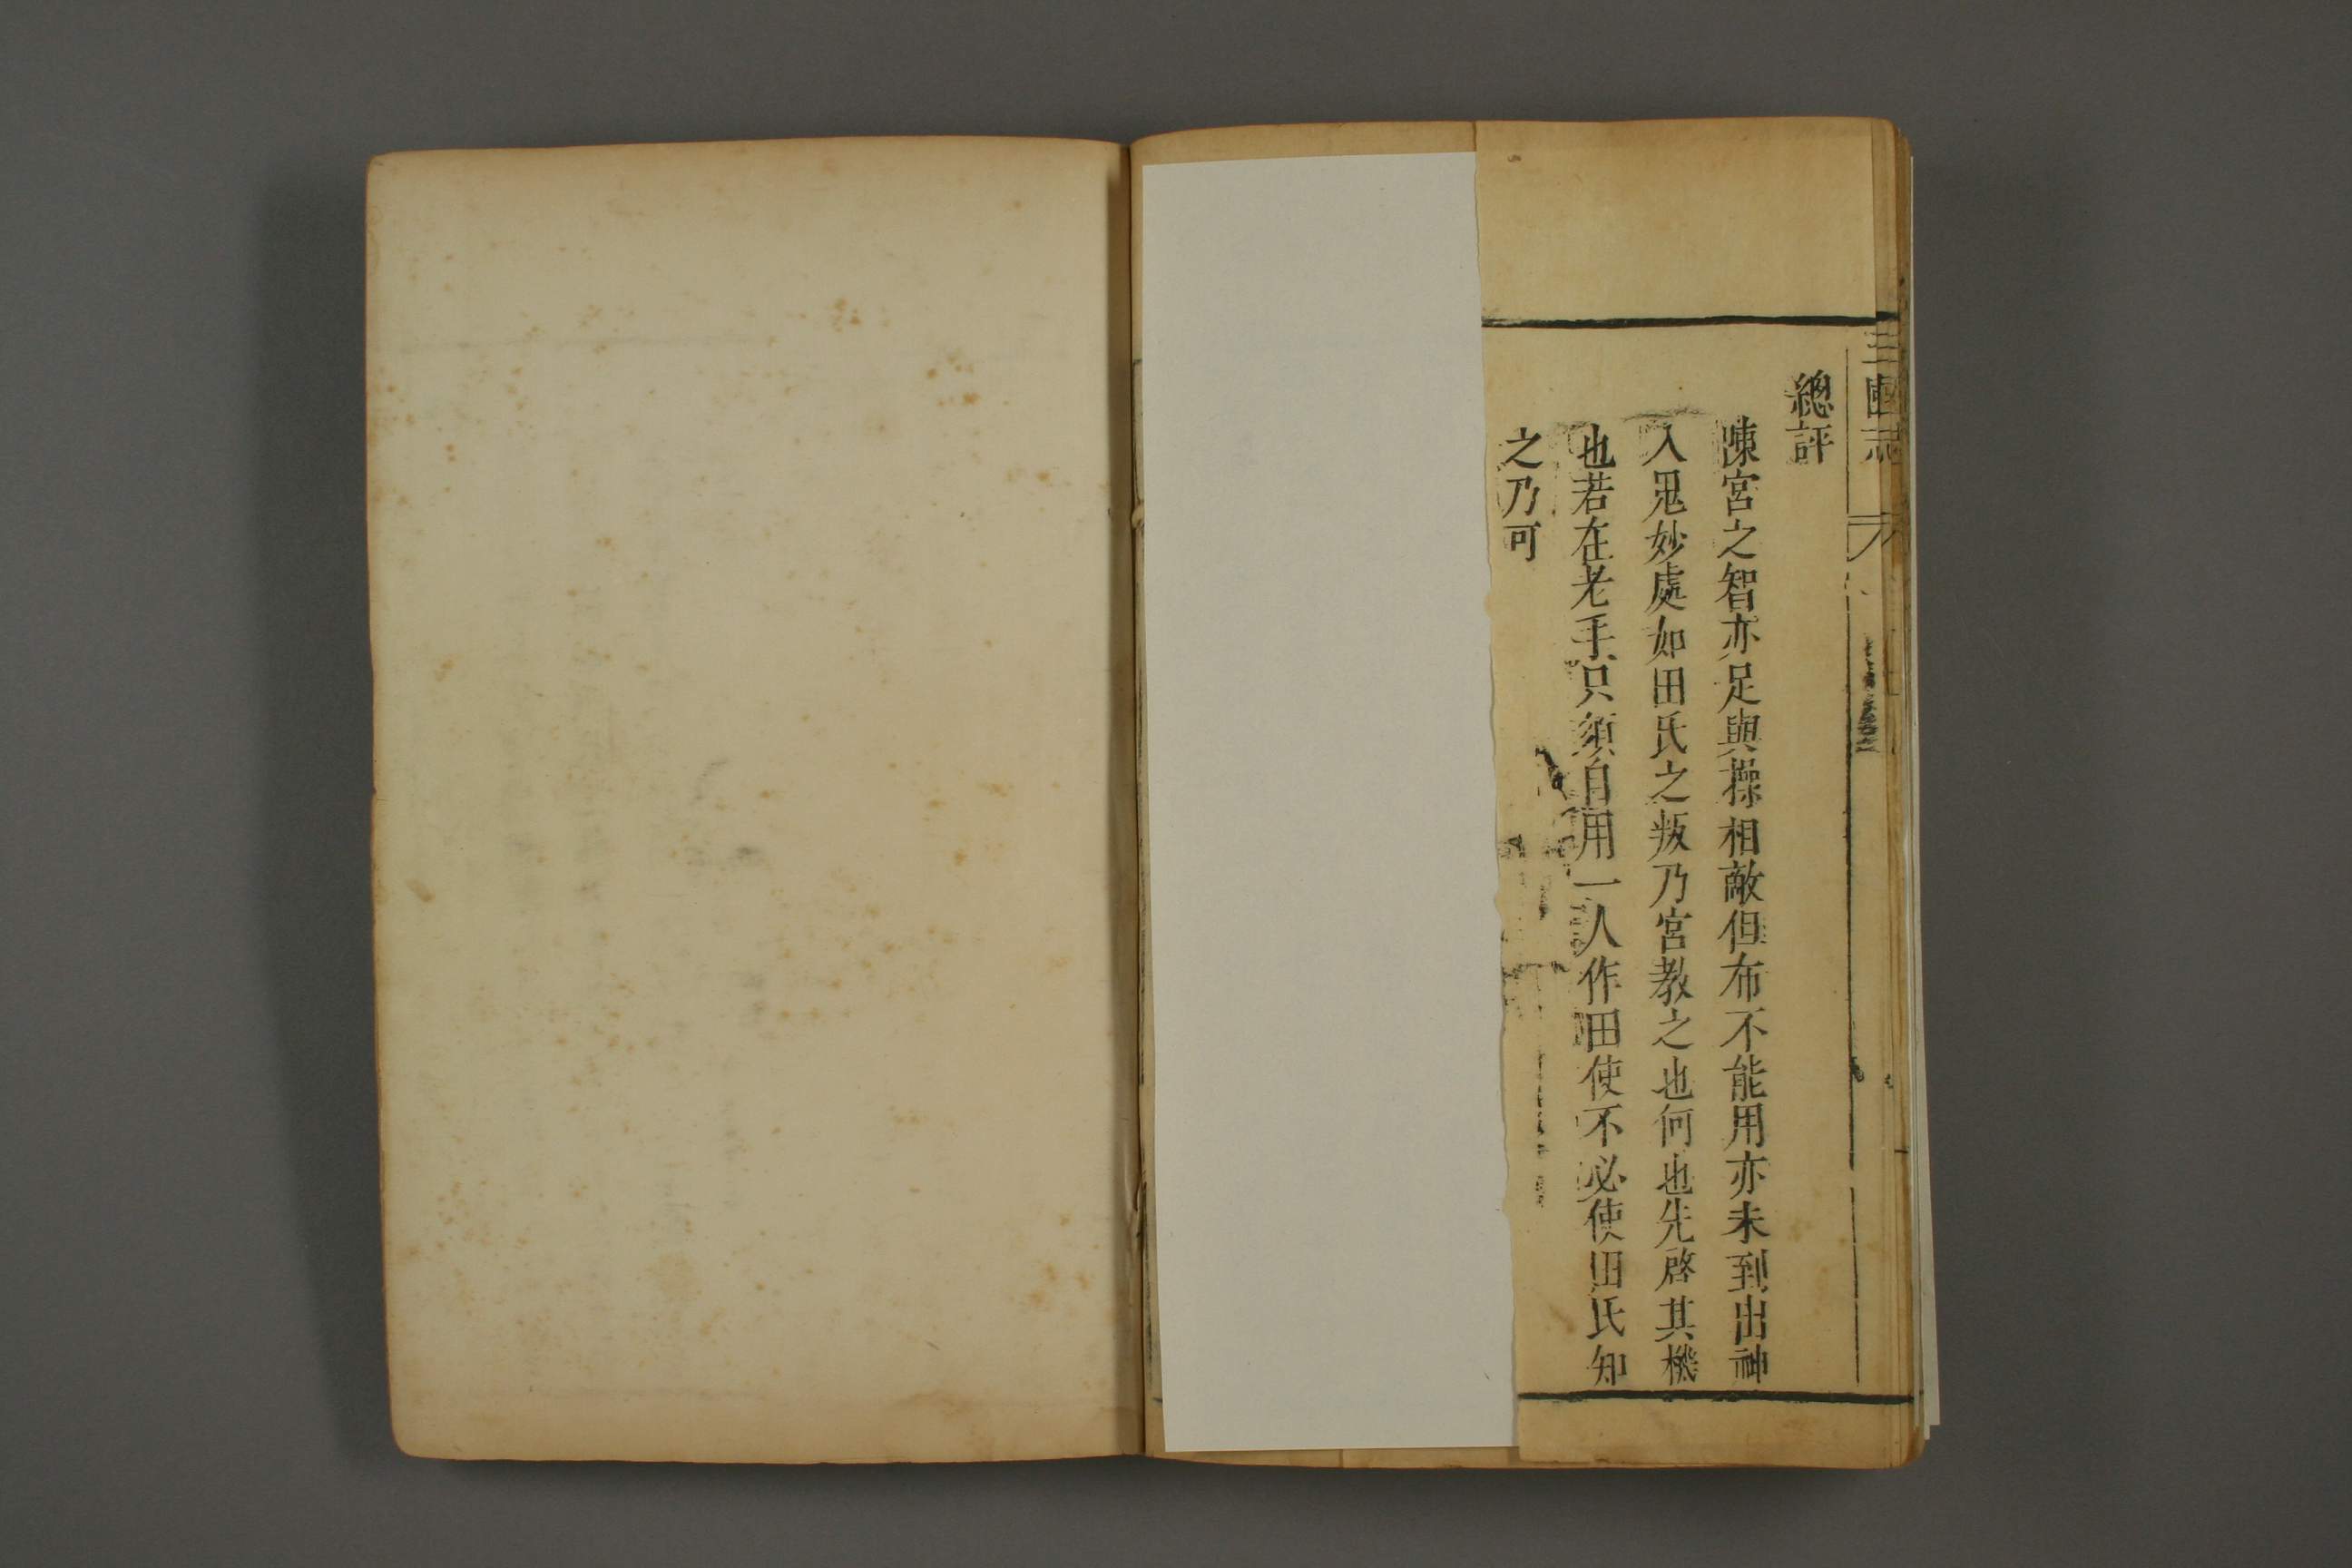 三國志
總評
陳宮之智亦足與操相敵但布不能用亦未到出神
入鬼妙處如田氏之叛乃宮教之也何也先啓其機
也若在老手只須自用一人作田使不必使田氏知
之乃可